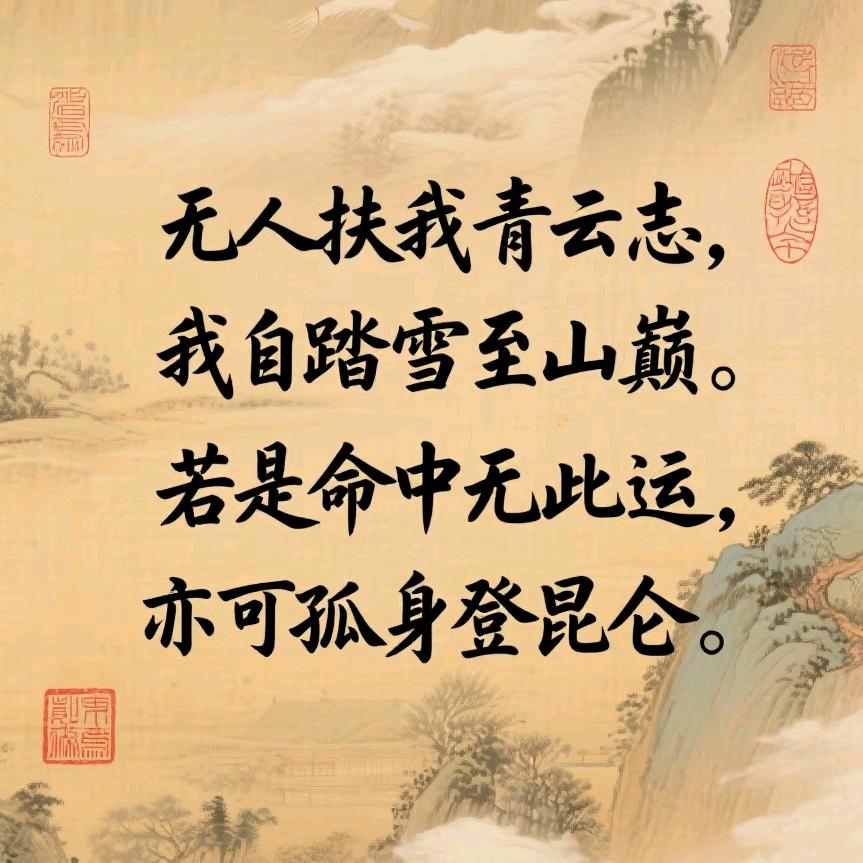 无人扶我青云志，
我自踏雪至山巅。
若是命中无此运，
亦可孤身登昆仑。